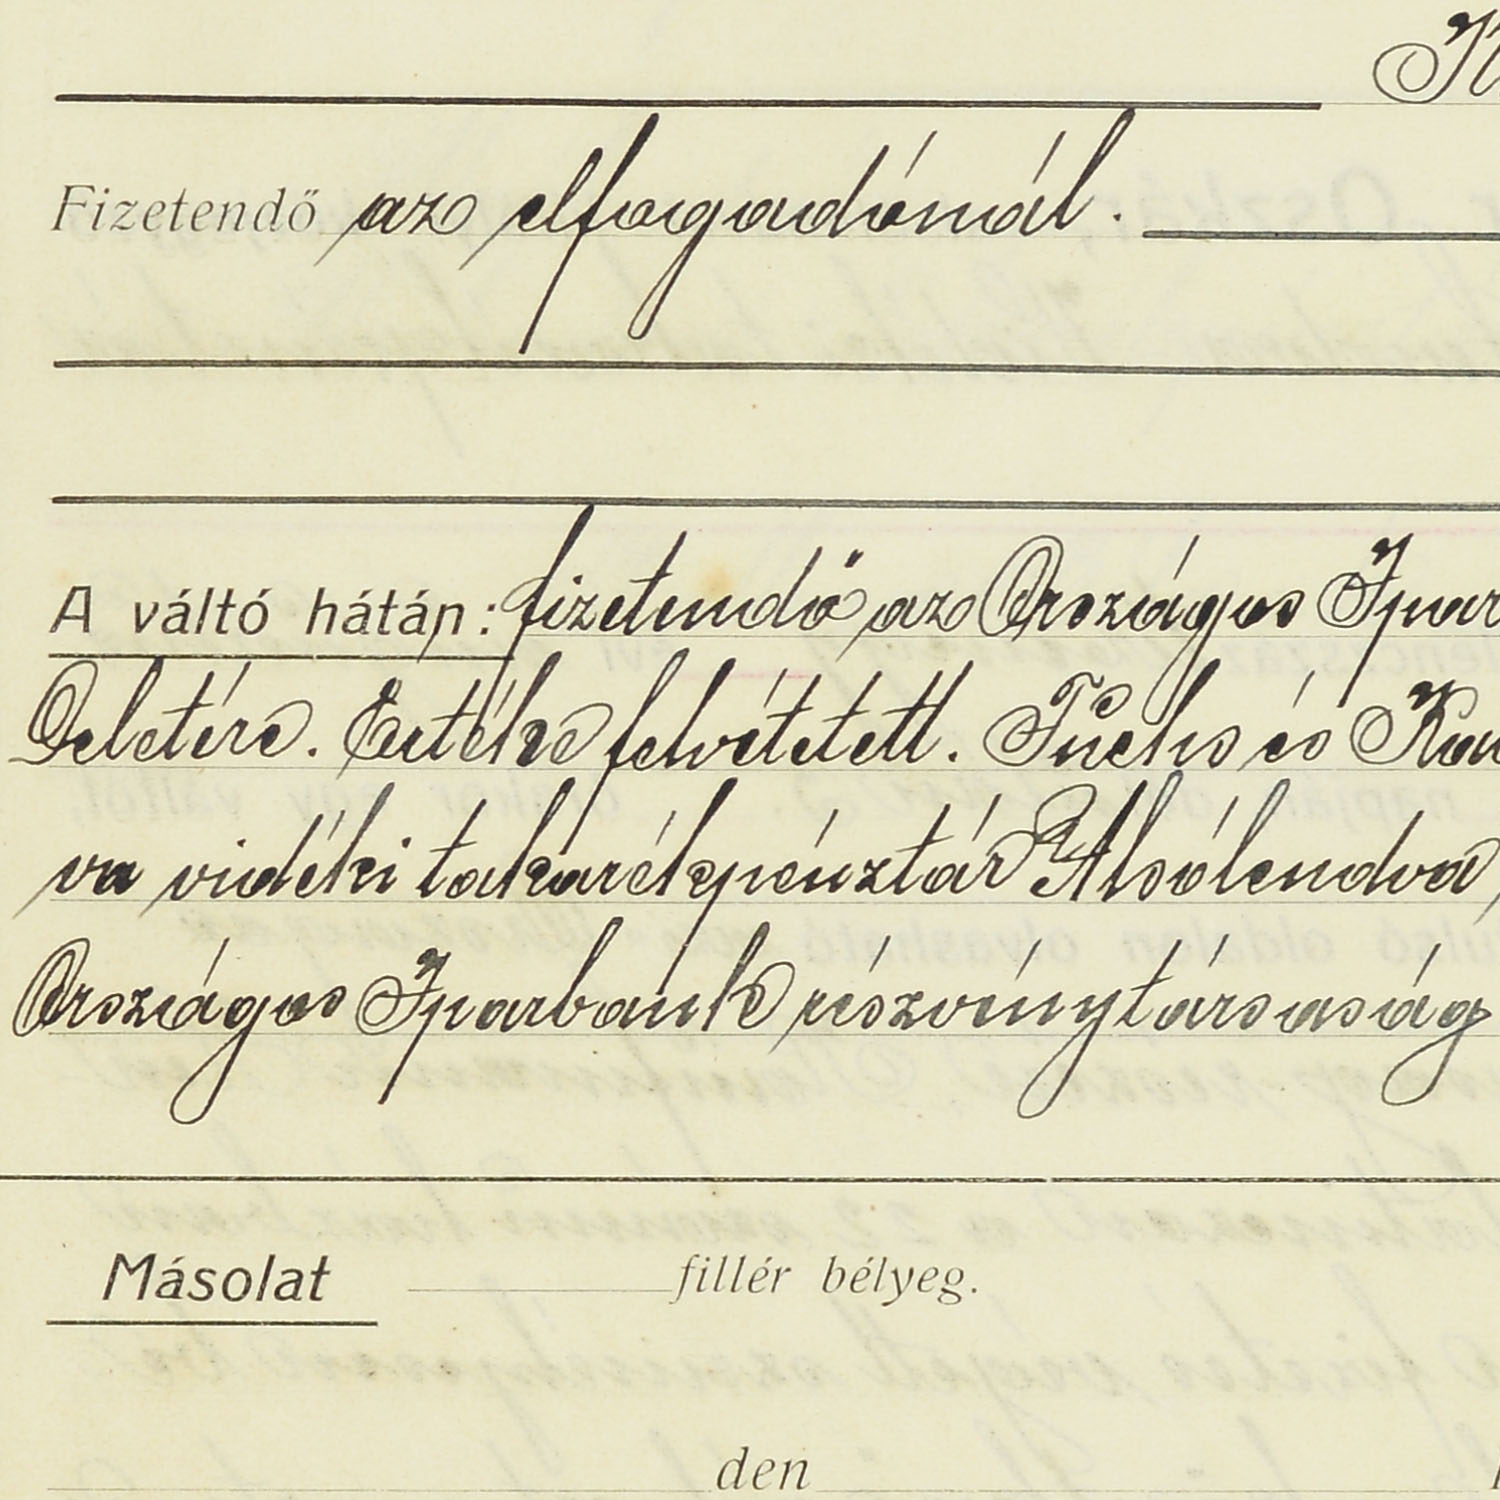 Fizetendő az elfogadónál.
A váltó hátán: fizetendő az Országos Ipar
Deletére. Értéke felvétetett. Fuchs és
va vidéki takarékpénztár Alsólendva,
Országos Iparbank részvénytársaság
Másolat fillér bélyeg.
den